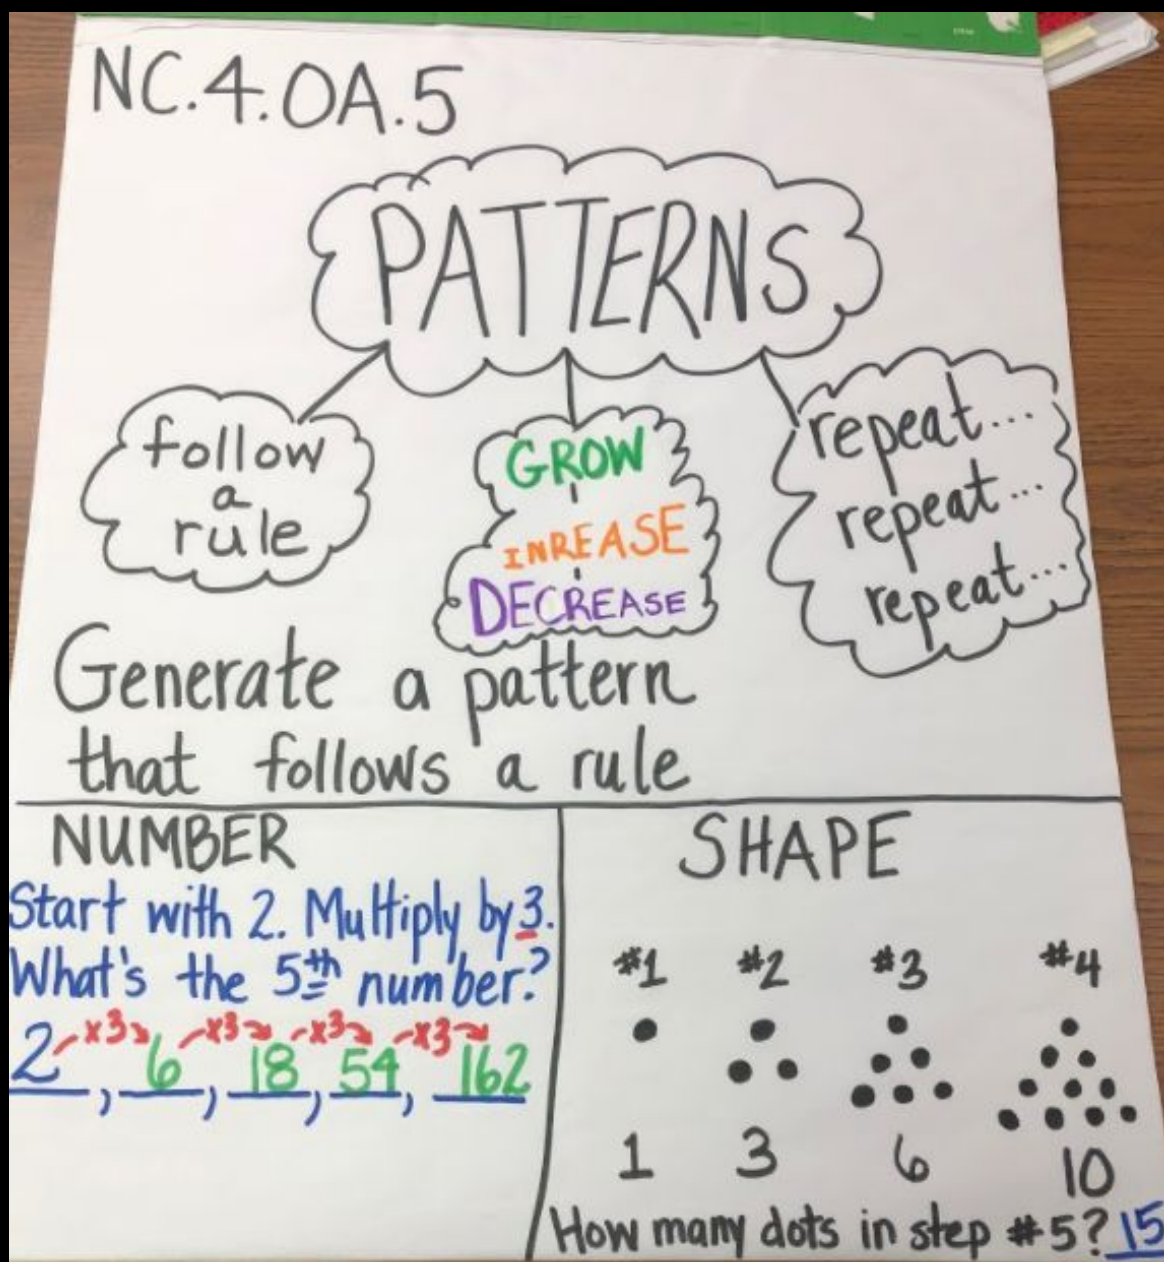 NC.4.OA.5
PATTERNS
follow
a
rule
GROW
INREASE
DECREASE
repeat...
repeat...
repeat...
Generate a pattern
that follows a rule
NUMBER
Start with 2. Multiply by 3.
What's the 5th number?
x3 x3 x3 x3
2, 6, 18, 54, 162
SHAPE
#1 #2 #3 #4
1 3 6 10
How many dots in step #5? 15